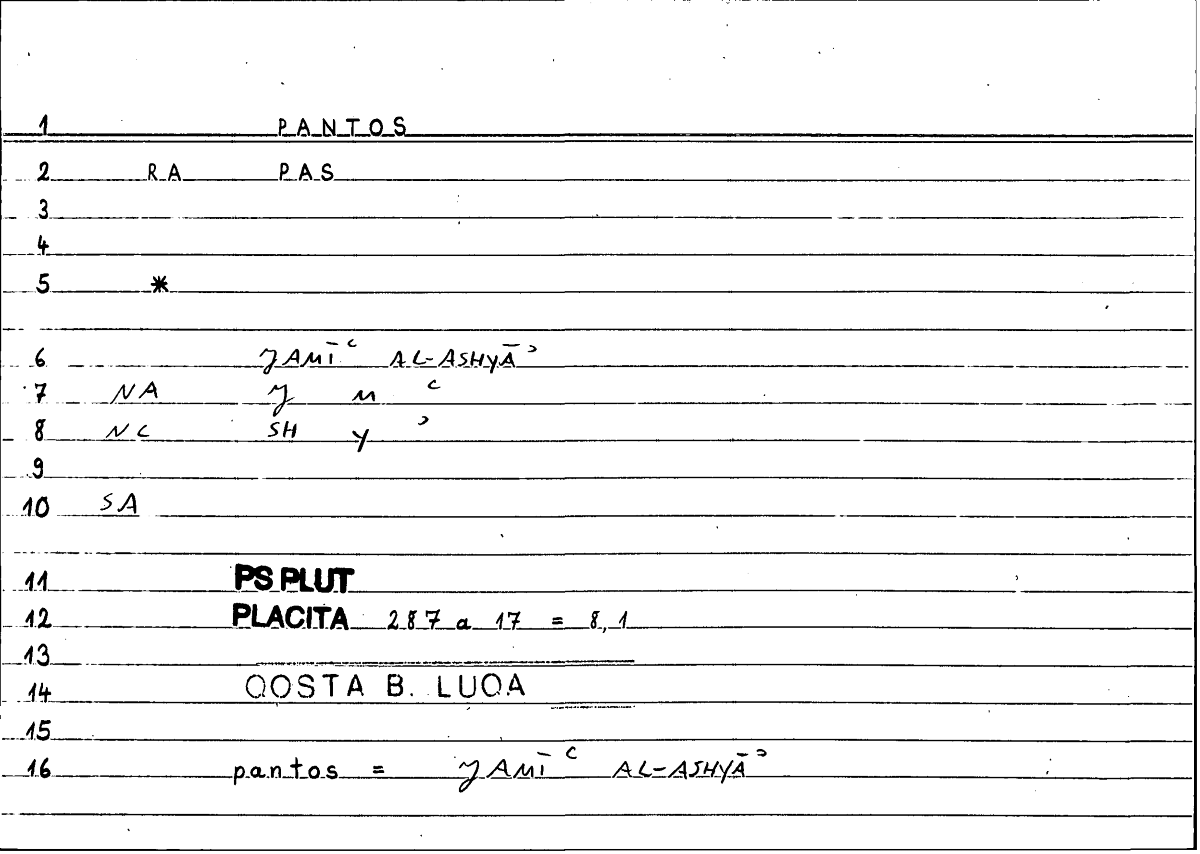 1 PANTOS
2 RA PAS
3
4
5 *
6 JAMĪʿ AL-ASHYĀʾ
7 NA J M ʿ
8 NC SH Y ʾ
9
10 SA
11 PS PLUT
12 PLACITA 287 a 17 = 8,1
13
14 QOSTA B. LUQA
15
16 pantos = JAMĪʿ AL-ASHYĀʾ